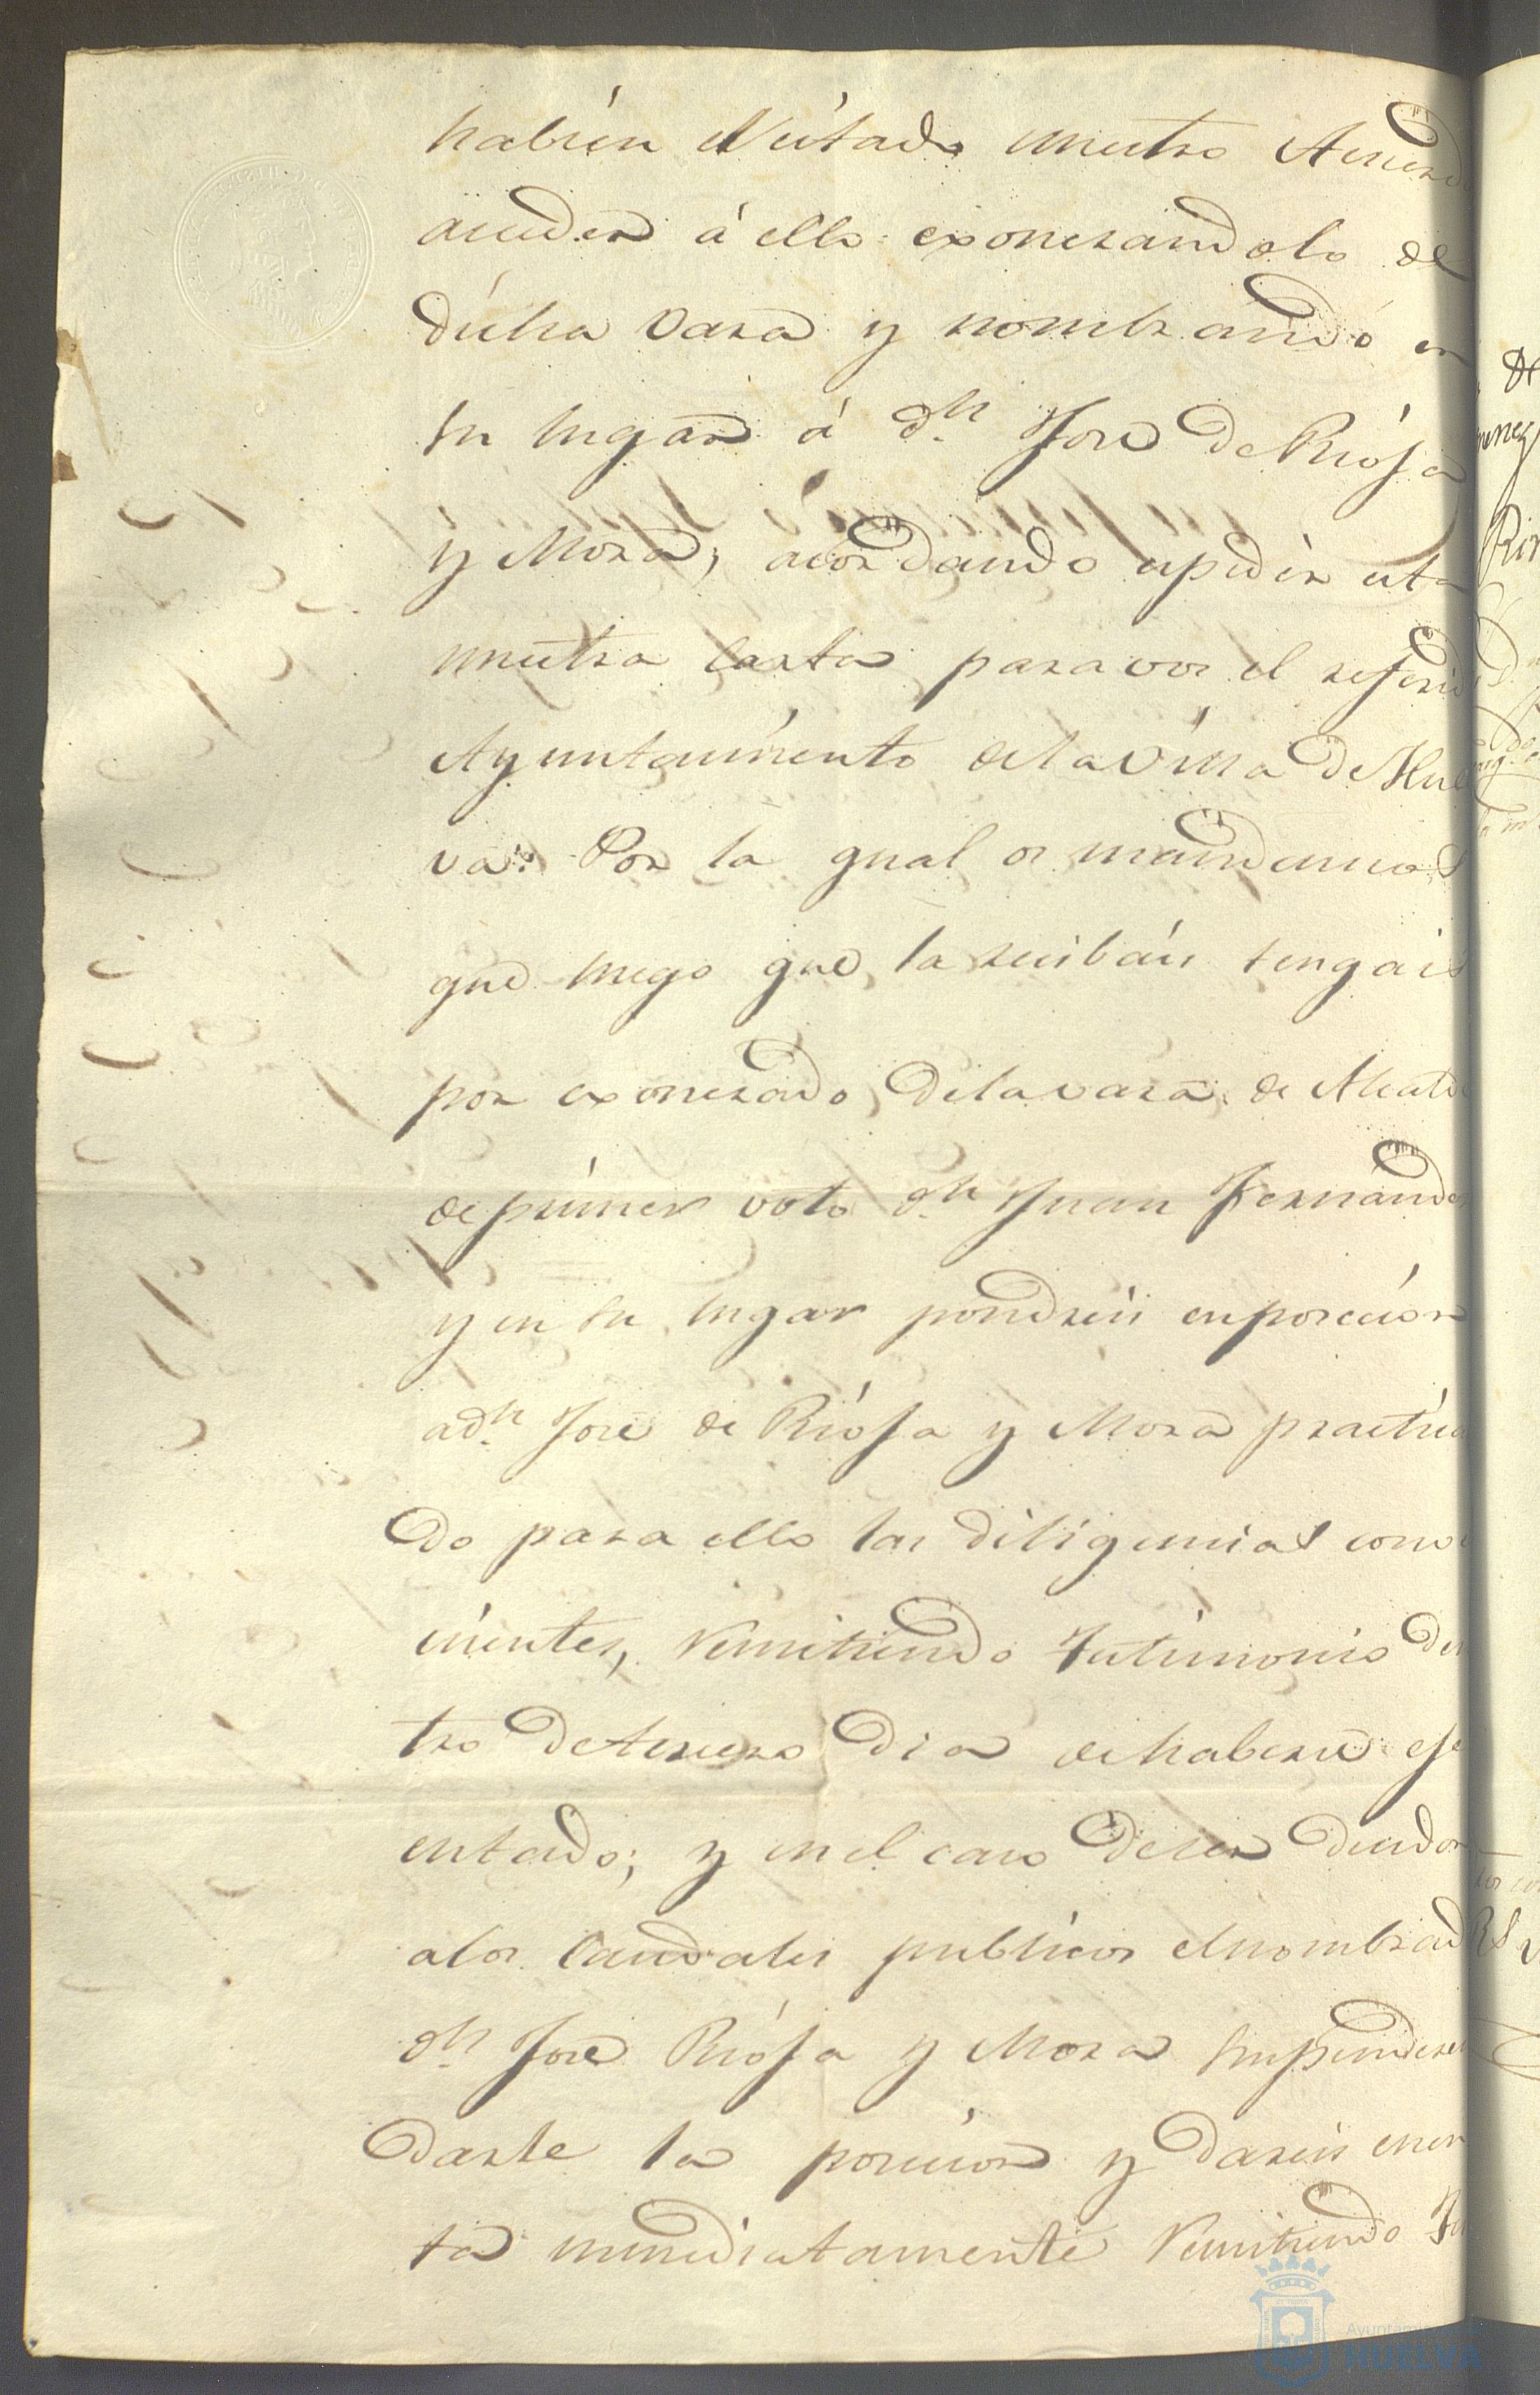 habien
nuestro Acuerdo
acceder á ello exonerandolo de
dicha Vara y nombrando en
su lugar á Dn Jose de Rioja
y Mora, acordando expedir esta
nuestra Carta para vos el referido
Ayuntamiento dela Villa de Huel
va: Por la qual os mandamos
que luego que la recibais tengais
por exonerado dela vara de Alcalde
de primer voto Dn Juan Fernandez
y en su lugar pondreis en posecion
a Dn Jose de Rioja y Mora practican
do para ello las diligencias condu
cientes, Remitiendo testimonio den
tro de tercero dia de haberse eje
cutado; y en el caso de ser deudor
alos Caudales publicos el nombrado
Dn Jose Rioja y Mora suspendereis
darle la posecion y dareis cuen
ta immediatamente Remitiendo
Ayuntamiento de
HUELVA